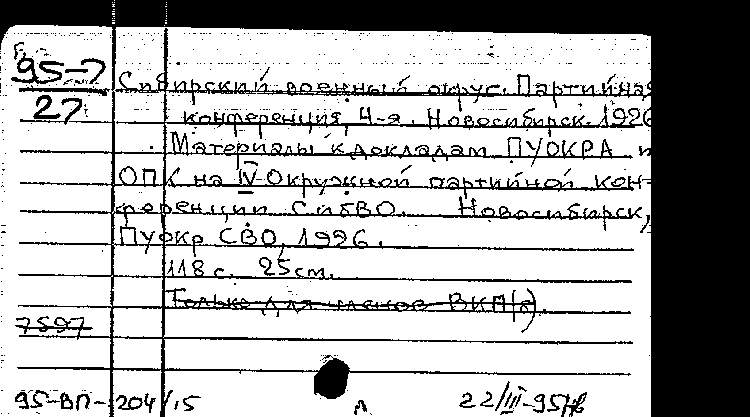 95-7
27
Сибирский военный округ. Партийная
конференция, 4-я. Новосибирск. 1926
Материалы к докладам ПУОКРА и
ОПК на IV Окружной партийной кон-
ференции СибВО. Новосибирск,
ПУокр СВО, 1926.
118 с. 25 см.
Только для членов ВКП(б).
7597
95-ВП-204/15
22/III-95